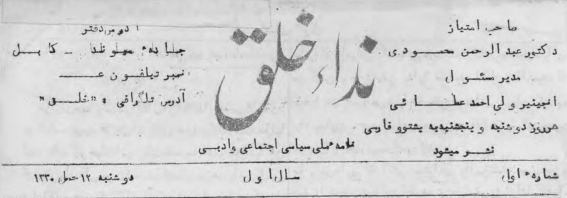 صاحب امتیاز
دکتور عبدالرحمن محمودی
مدیر مسئول
انجینیر ولی احمد عطائی
هرروز دوشنبه و پنجشنبه به پشتو و فارسی
نشر میشود
نداء خلق
نامهٔ ملی سیاسی اجتماعی وادبی
آدرس دفتر
کابل
نمبر تیلفون
آدرس تلگرافی : «خلق»
شمارهٔ اول
سال اول
دوشنبه ۱۲ حمل ۱۳۳۰